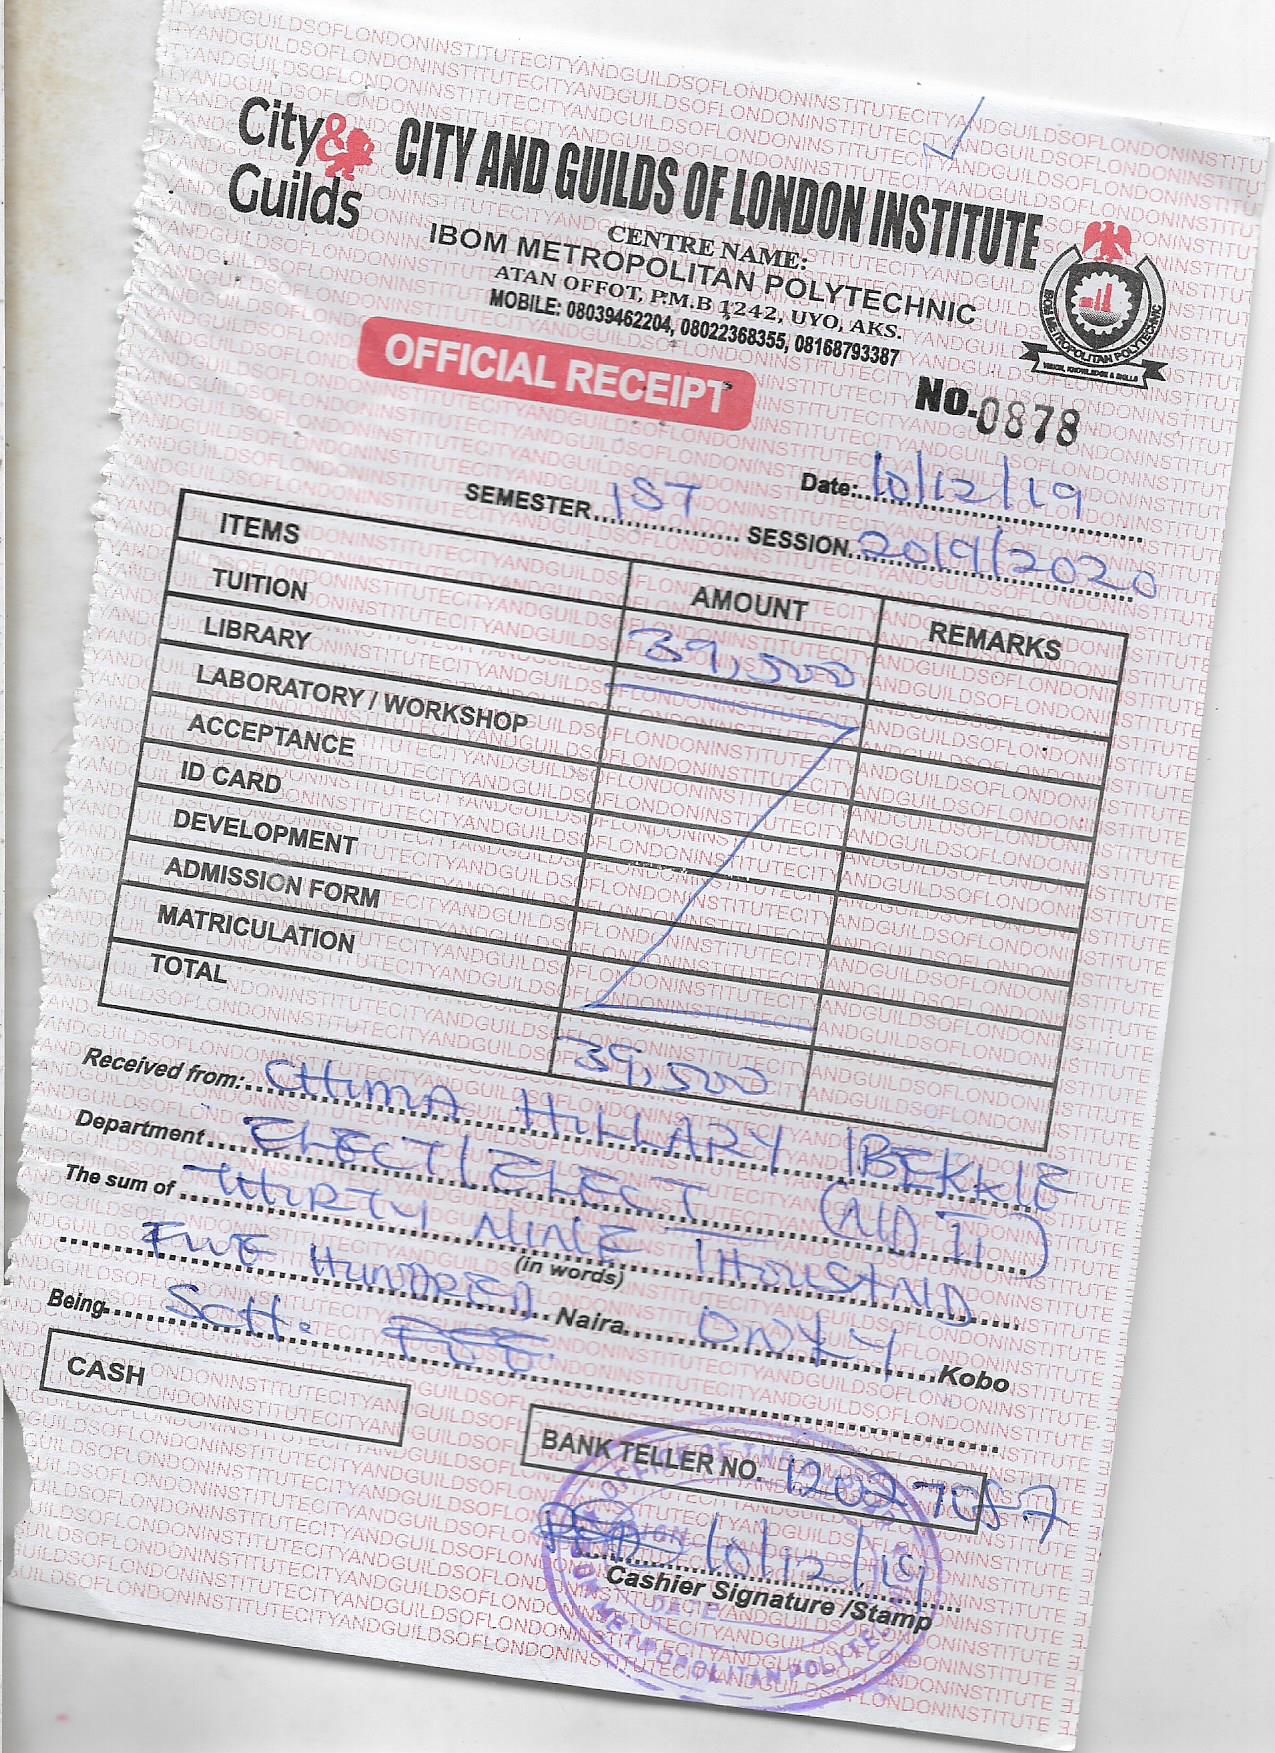 City & Guilds
CITY AND GUILDS OF LONDON INSTITUTE
CENTRE NAME:
IBOM METROPOLITAN POLYTECHNIC
ATAN OFFOT, P.M.B 1242, UYO, AKS.
MOBILE: 08039462204, 08022368355, 08168793387
IBOM METROPOLITAN POLYTECHNIC
VISION, KNOWLEDGE & SKILLS
OFFICIAL RECEIPT
NO. 0878
Date: 10/12/19
SEMESTER 1ST SESSION 2019/2020
ITEMS AMOUNT REMARKS
TUITION 39,500
LIBRARY
LABORATORY / WORKSHOP
ACCEPTANCE
ID CARD
DEVELOPMENT
ADMISSION FORM
MATRICULATION
TOTAL 39,500
Received from: CHIMA HILLARY IBEKKIE
Department ELECT/ELECT (ND II)
The sum of THIRTY NINE THOUSAND
(in words)
FIVE HUNDRED Naira ONLY Kobo
Being SCH. FEE
CASH
BANK TELLER NO. 12027057
10/12/19
Cashier Signature /Stamp